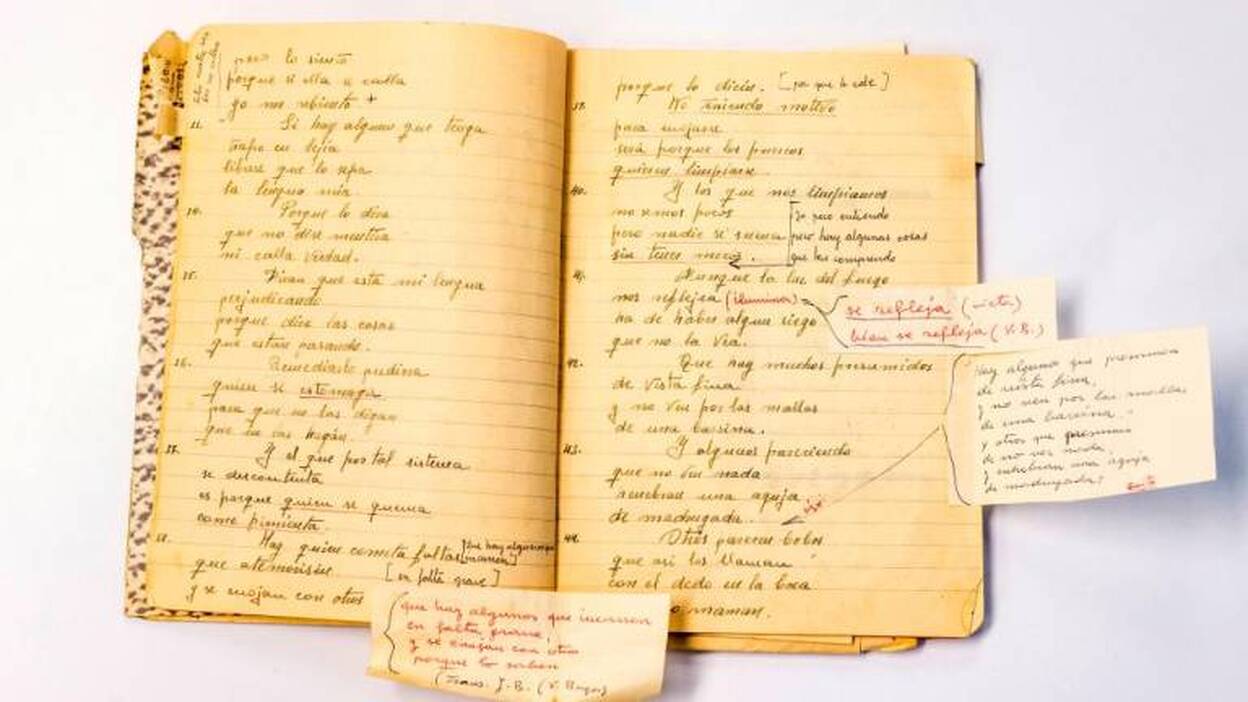 pero lo siento
porque si ella se calla
yo me rebiento +
Si hay alguno que tenga
trapo en lejía
sabrá que lo sepa
la lengua mía
14. Porque lo dice
que no dise mentira
ni calla verdad.
15. Disan que esta mi lengua
perjudicando
porque dice las cosas
que están pasando.
16. Remediarlo pudiera
quien se estomaga
para que no las digan
que no las hagan.
Y el que por tal sistema
se descontenta
es porque quien se quema
come pimienta.
Hay quien cometa faltas [que hay algunos que
que atemorisen [en falta grave]
y se enojan con otros
que hay algunos que incurren
en falta grave,
y se enojan con otros
porque lo saben
(Trans. J. B. (V. Burgos)
porque lo dicen. [por que lo sabe]
No teniendo motivo
para enojarse
será porque los puercos
quieren limpiarse
40. Y los que nos limpiamos
no semos pocos
pero nadie se suena
sin tener mocos.
[Yo poco entiendo
pero hay algunas cosas
que las comprendo
41. Aunque la luz del fuego
nos refleja (iluminos)
ha de haber algun siego
que no la vea.
se refleja (vista)
bien se refleja (V. B.)
42. Que hay muchos presumidos
de vista fina
y no ven por las mallas
de una harina.
Hay alguno que presumen
de vista fina,
y no ven por las mallas
de una harina.
y otros que presumen
de no ver nada,
y enhebran una aguja
de madrugada!
43. Y algunos pareciendo
que no ven nada
enebran una aguja
de madrugada.
44. Otros parecen bobos
que asi los llaman
con el dedo en la boca
o maman.